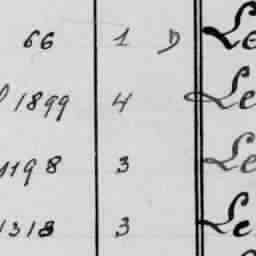 66 1 D Le
1899 4 Le
1198 3 Le
1318 3 Le